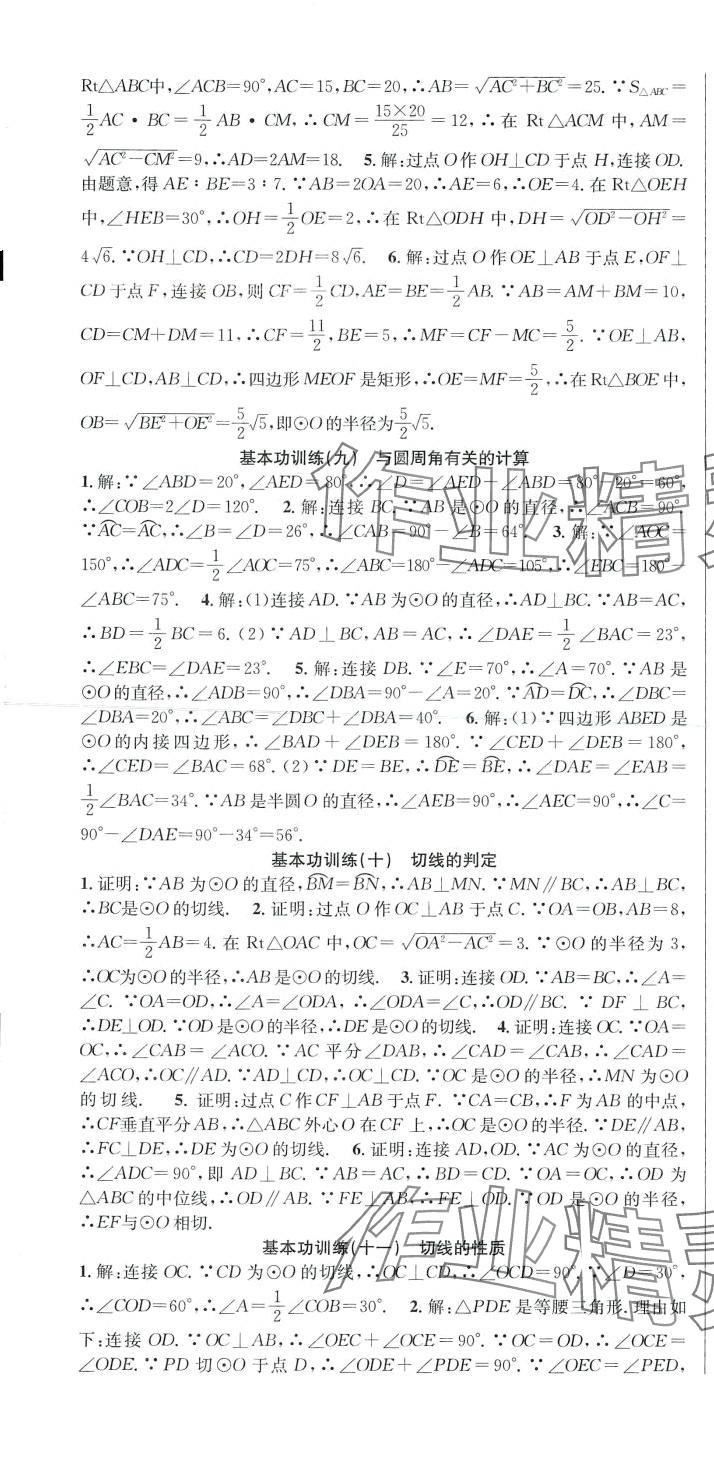 Rt△ABC中,∠ACB=90°,AC=15,BC=20,∴AB=√(AC²+BC²)=25.∵S△ABC=
1/2 AC·BC=1/2 AB·CM,∴CM=(15×20)/25=12,∴在 Rt△ACM 中,AM=
√(AC²-CM²)=9,∴AD=2AM=18. 5.解:过点O作OH⊥CD于点H,连接OD.
由题意,得AE∶BE=3∶7.∵AB=2OA=20,∴AE=6,∴OE=4.在Rt△OEH
中,∠HEB=30°,∴OH=1/2 OE=2,∴在Rt△ODH中,DH=√(OD²-OH²)=
4√6.∵OH⊥CD,∴CD=2DH=8√6. 6.解:过点O作OE⊥AB于点E,OF⊥
CD于点F,连接OB,则CF=1/2 CD,AE=BE=1/2 AB.∵AB=AM+BM=10,
CD=CM+DM=11,∴CF=11/2,BE=5,∴MF=CF-MC=5/2.∵OE⊥AB,
OF⊥CD,AB⊥CD,∴四边形MEOF是矩形,∴OE=MF=5/2,∴在Rt△BOE中,
OB=√(BE²+OE²)=5/2 √5,即⊙O的半径为5/2 √5.
基本功训练(九) 与圆周角有关的计算
1.解:∵∠ABD=20°,∠AED=80°,∴∠D=∠AED-∠ABD=80°-20°=60°,
∴∠COB=2∠D=120°. 2.解:连接BC.∵AB是⊙O的直径,∴∠ACB=90°.
∵⌒AC=⌒AC,∴∠B=∠D=26°,∴∠CAB=90°-∠B=64°. 3.解:∵∠AOC=
150°,∴∠ADC=1/2∠AOC=75°,∴∠ABC=180°-∠ADC=105°,∴∠EBC=180°-
∠ABC=75°. 4.解:(1)连接AD.∵AB为⊙O的直径,∴AD⊥BC.∵AB=AC,
∴BD=1/2 BC=6.(2)∵AD⊥BC,AB=AC,∴∠DAE=1/2∠BAC=23°,
∴∠EBC=∠DAE=23°. 5.解:连接DB.∵∠E=70°,∴∠A=70°.∵AB是
⊙O的直径,∴∠ADB=90°,∴∠DBA=90°-∠A=20°.∵⌒AD=⌒DC,∴∠DBC=
∠DBA=20°,∴∠ABC=∠DBC+∠DBA=40°. 6.解:(1)∵四边形ABED是
⊙O的内接四边形,∴∠BAD+∠DEB=180°.∵∠CED+∠DEB=180°,
∴∠CED=∠BAC=68°.(2)∵DE=BE,∴⌒DE=⌒BE,∴∠DAE=∠EAB=
1/2∠BAC=34°.∵AB是半圆O的直径,∴∠AEB=90°,∴∠AEC=90°,∴∠C=
90°-∠DAE=90°-34°=56°.
基本功训练(十) 切线的判定
1.证明:∵AB为⊙O的直径,⌒BM=⌒BN,∴AB⊥MN.∵MN∥BC,∴AB⊥BC,
∴BC是⊙O的切线. 2.证明:过点O作OC⊥AB于点C.∵OA=OB,AB=8,
∴AC=1/2 AB=4.在Rt△OAC中,OC=√(OA²-AC²)=3.∵⊙O的半径为3,
∴OC为⊙O的半径,∴AB是⊙O的切线. 3.证明:连接OD.∵AB=BC,∴∠A=
∠C.∵OA=OD,∴∠A=∠ODA,∴∠ODA=∠C,∴OD∥BC.∵DF⊥BC,
∴DE⊥OD.∵OD是⊙O的半径,∴DE是⊙O的切线. 4.证明:连接OC.∵OA=
OC,∴∠CAB=∠ACO.∵AC平分∠DAB,∴∠CAD=∠CAB,∴∠CAD=
∠ACO,∴OC∥AD.∵AD⊥CD,∴OC⊥CD.∵OC是⊙O的半径,∴MN为⊙O
的切线. 5.证明:过点C作CF⊥AB于点F.∵CA=CB,∴F为AB的中点,
∴CF垂直平分AB,∴△ABC外心O在CF上,∴OC为⊙O的半径.∵DE∥AB,
∴FC⊥DE,∴DE为⊙O的切线. 6.证明:连接AD,OD.∵AC为⊙O的直径,
∴∠ADC=90°,即AD⊥BC.∵AB=AC,∴BD=CD.∵OA=OC,∴OD为
△ABC的中位线,∴OD∥AB.∵FE⊥AB,∴FE⊥OD.∵OD是⊙O的半径,
∴EF与⊙O相切.
基本功训练(十一) 切线的性质
1.解:连接OC.∵CD为⊙O的切线,∴OC⊥CD,∴∠OCD=90°.∵∠D=30°,
∴∠COD=60°,∴∠A=1/2∠COB=30°. 2.解:△PDE是等腰三角形.理由如
下:连接OD.∵OC⊥AB,∴∠OEC+∠OCE=90°.∵OC=OD,∴∠OCE=
∠ODE.∵PD切⊙O于点D,∴∠ODE+∠PDE=90°.∵∠OEC=∠PED,
作业精灵
作业精灵